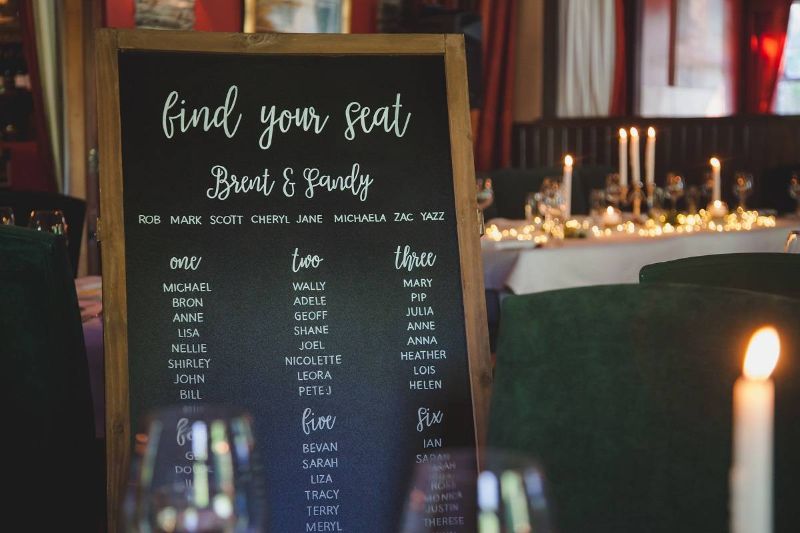 find your seat
Brent & Sandy
ROB MARK SCOTT CHERYL JANE MICHAELA ZAC YAZZ
one
MICHAEL
BRON
ANNE
LISA
NELLIE
SHIRLEY
JOHN
BILL
two
WALLY
ADELE
GEOFF
SHANE
JOEL
NICOLETTE
LEORA
PETE:J
three
MARY
PIP
JULIA
ANNE
ANNA
HEATHER
LOIS
HELEN
five
BEVAN
SARAH
LIZA
TRACY
TERRY
MERYL
six
IAN
SARAH
MONICA
JUSTIN
THERESE